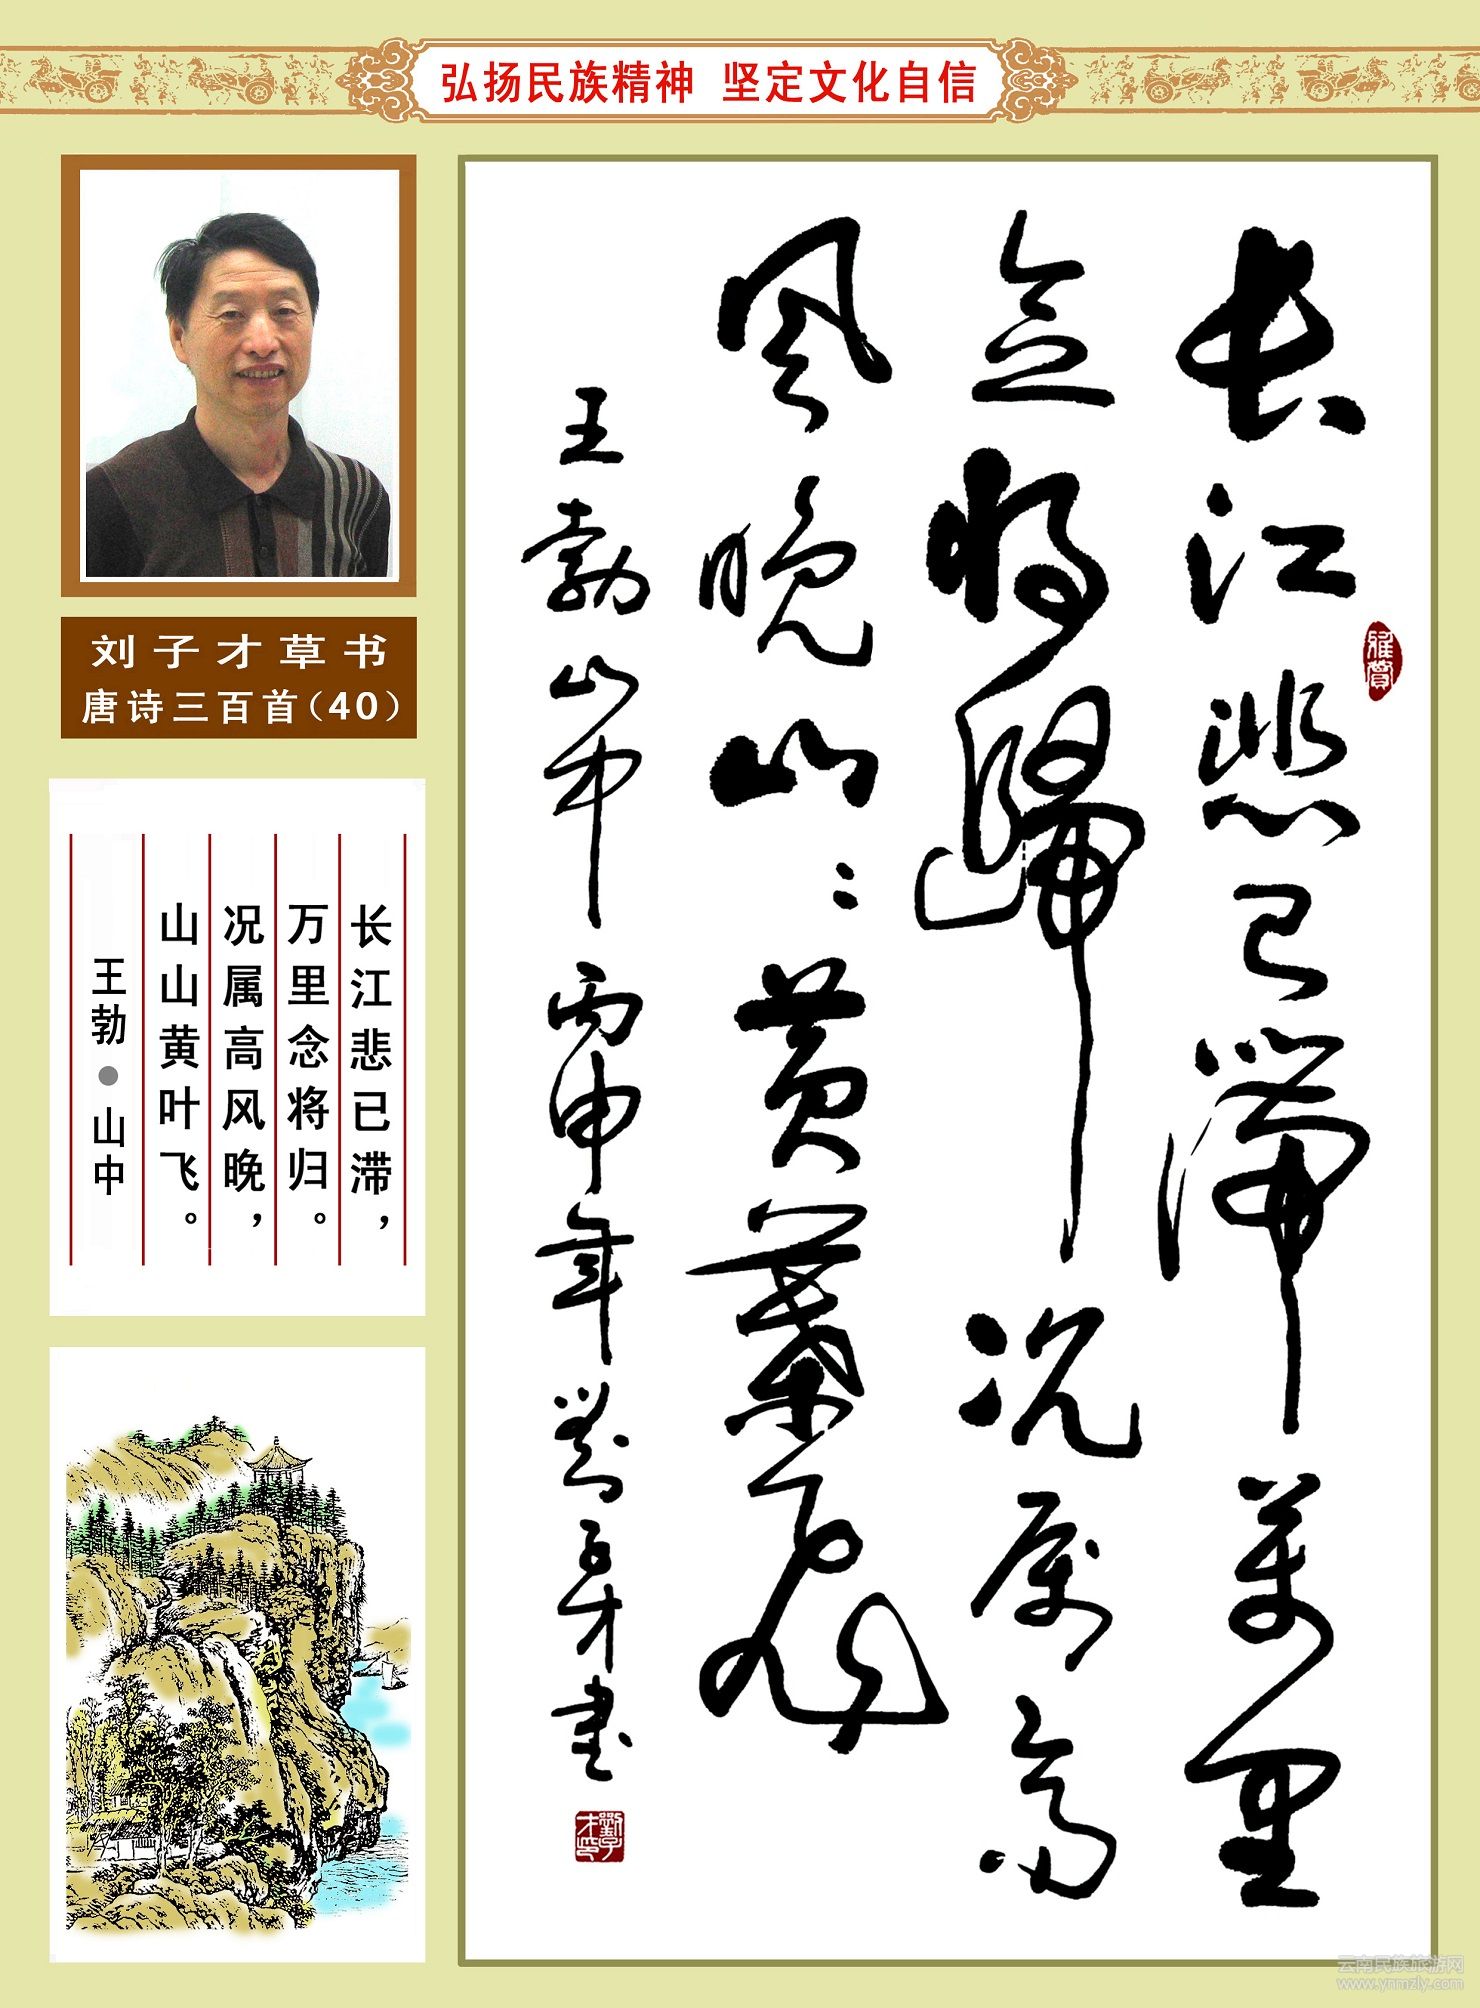 弘扬民族精神 坚定文化自信
刘子才草书
唐诗三百首(40)
长江悲已滞，
万里念将归。
况属高风晚，
山山黄叶飞。
王勃●山中
长江悲已滞萬里
念将歸况属高
风晚山〻黄葉飛
王勃山中丙申年劉子才書
雅賞
劉子才印
云南民族旅游网
www.ynmzly.com